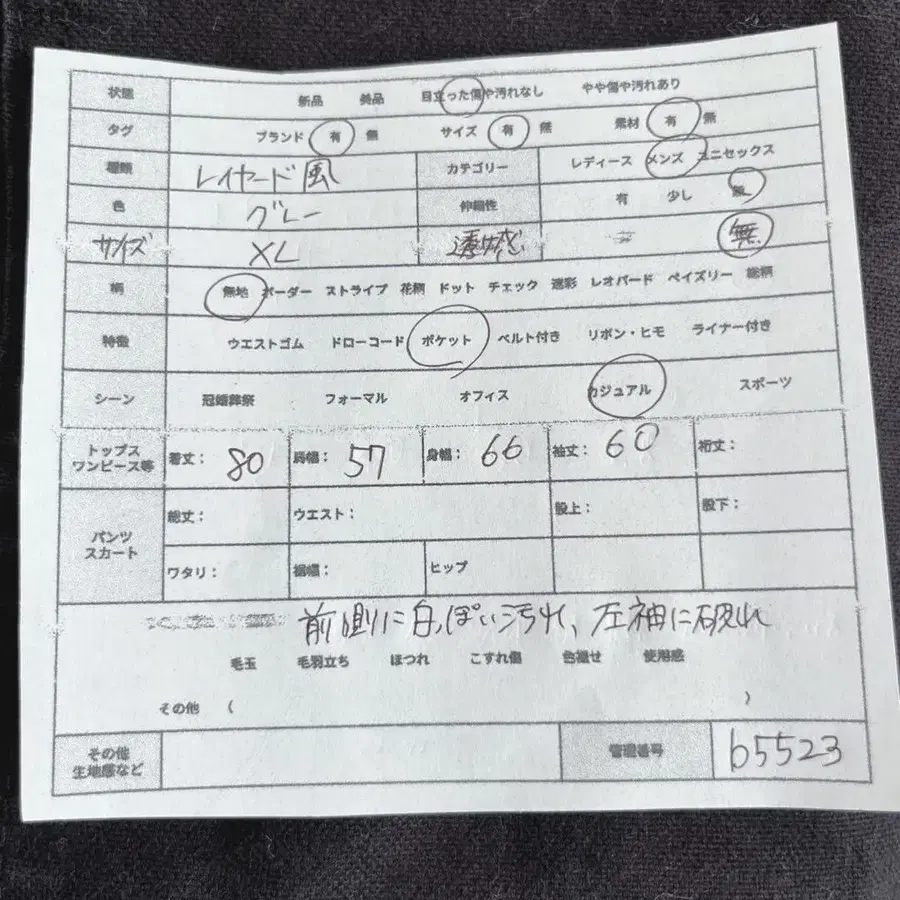 状態 新品 美品 目立った傷や汚れなし やや傷や汚れあり
タグ ブランド 有 無 サイズ 有 無 素材 有 無
種類 レイヤード風 カテゴリー レディース メンズ ユニセックス
色 グレー 伸縮性 有 少し 無
サイズ XL 透け感 無
柄 無地 ボーダー ストライプ 花柄 ドット チェック 迷彩 レオパード ペイズリー 総柄
特徴 ウエストゴム ドローコード ポケット ベルト付き リボン・ヒモ ライナー付き
シーン 冠婚葬祭 フォーマル オフィス カジュアル スポーツ
トップス
ワンピース等 着丈: 80 肩幅: 57 身幅: 66 袖丈: 60 裄丈:
パンツ
スカート 総丈: ウエスト: 股上: 股下:
ワタリ: 裾幅: ヒップ
前側に白っぽい汚れ、左袖に破れ
毛玉 毛羽立ち ほつれ こすれ傷 色褪せ 使用感
その他 ( )
その他
生地感など 管理番号 b5523